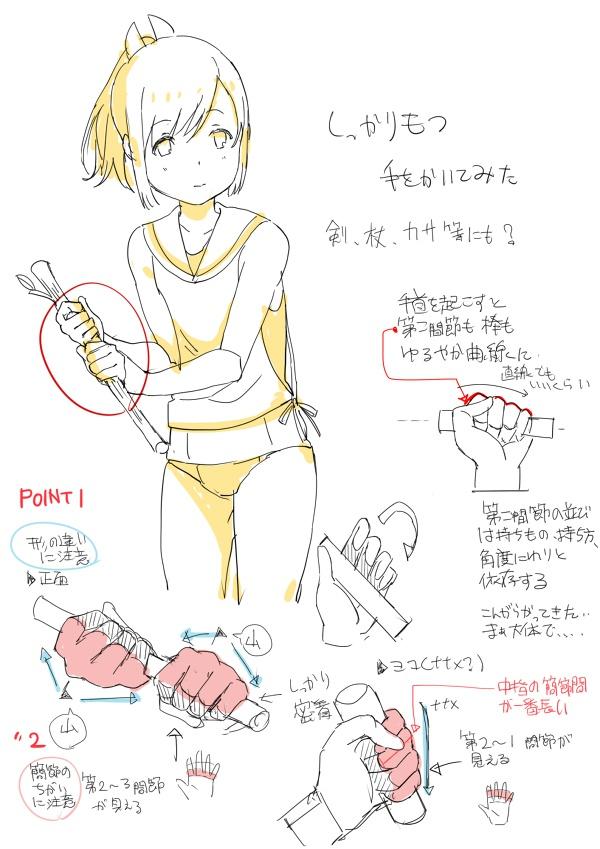 しっかりもつ
手をかいてみた
剣、杖、カサ等にも？
手首を起こすと
第二間節も棒も
ゆるやか曲線に
直線でも
いいくらい
POINT1
形の違い
に注意
正面
第二間節の並び
は持ちもの、持ち方、
角度にわりと
依存する
こんがらがってきた…
まぁ大体で…..
山
山
しっかり
密着
ヨコ(ナナメ?)
中指の間節間
が一番長い
ナナメ
第2〜1間節が
見える
"2
間節の
ちがい
に注意
第2〜3間節
が見える